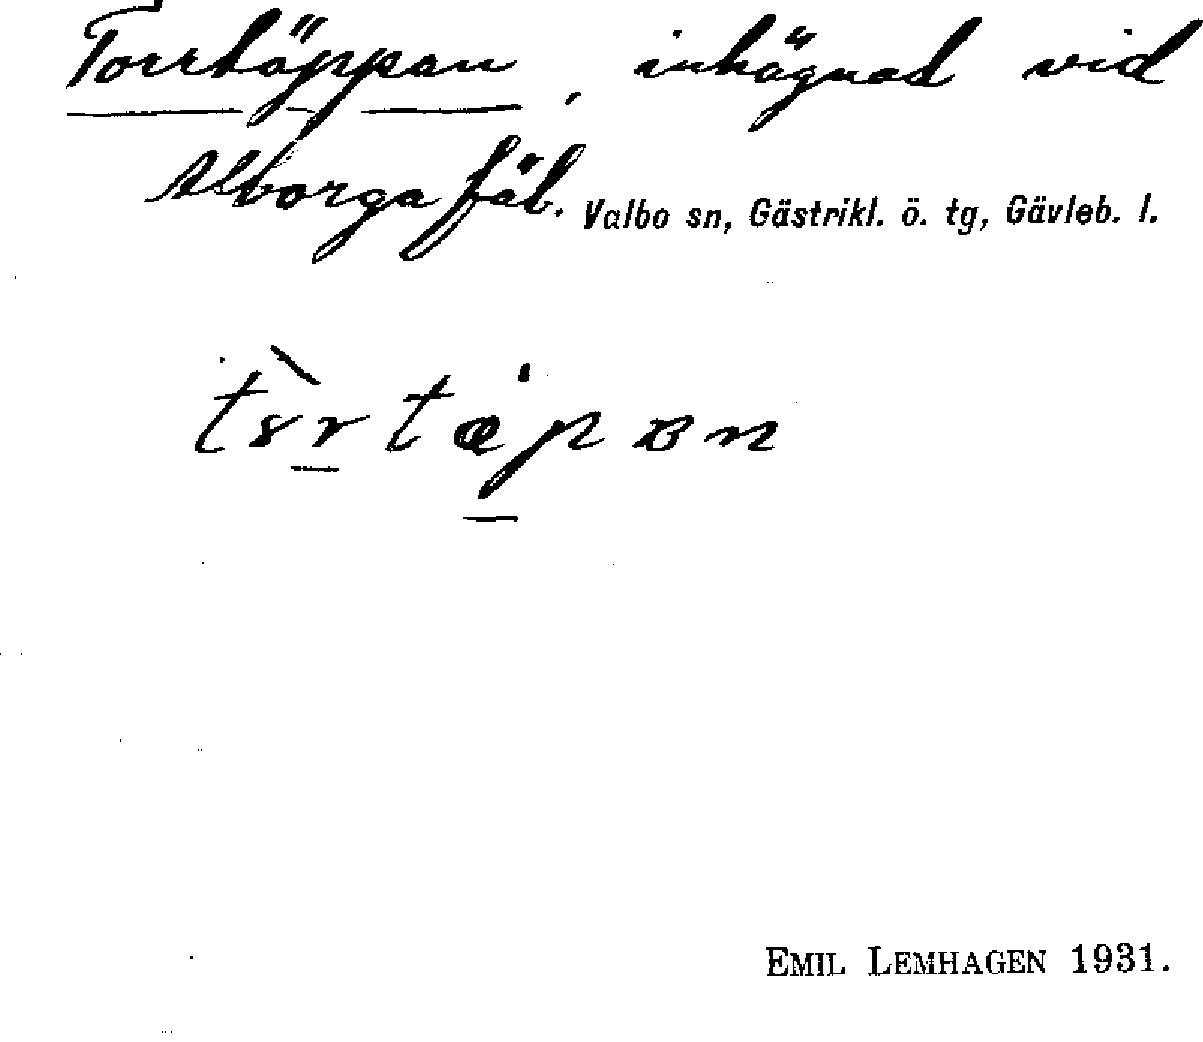 Torrtäppan, inhägnad vid
Alborga fäb. Valbo sn, Gästrikl. ö. tg, Gävleb. l.
EMIL LEMHAGEN 1931.